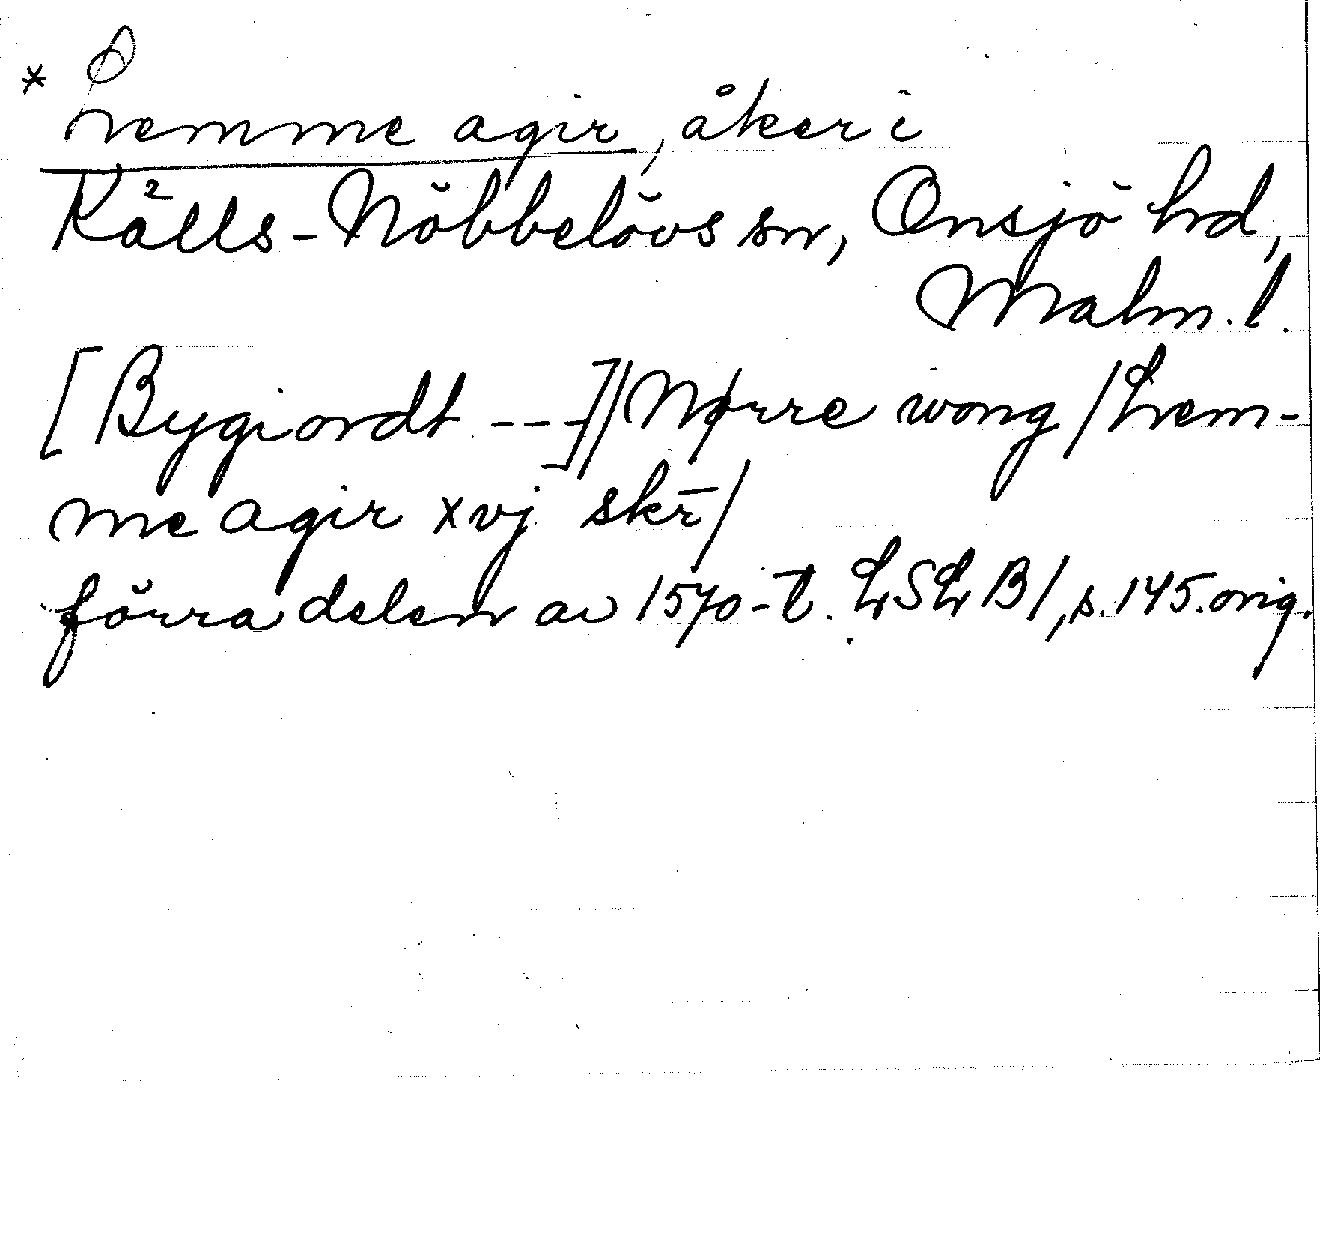 * Lemme agir, åker i
Källs-Nöbbelövs sn, Onsjö hd,
Malm. l.
[Bygiordt ---]/Nørre wong/Lem-
me agir xvj skr̄/
förra delen av 1570-t. LSLB1, s. 145. orig.